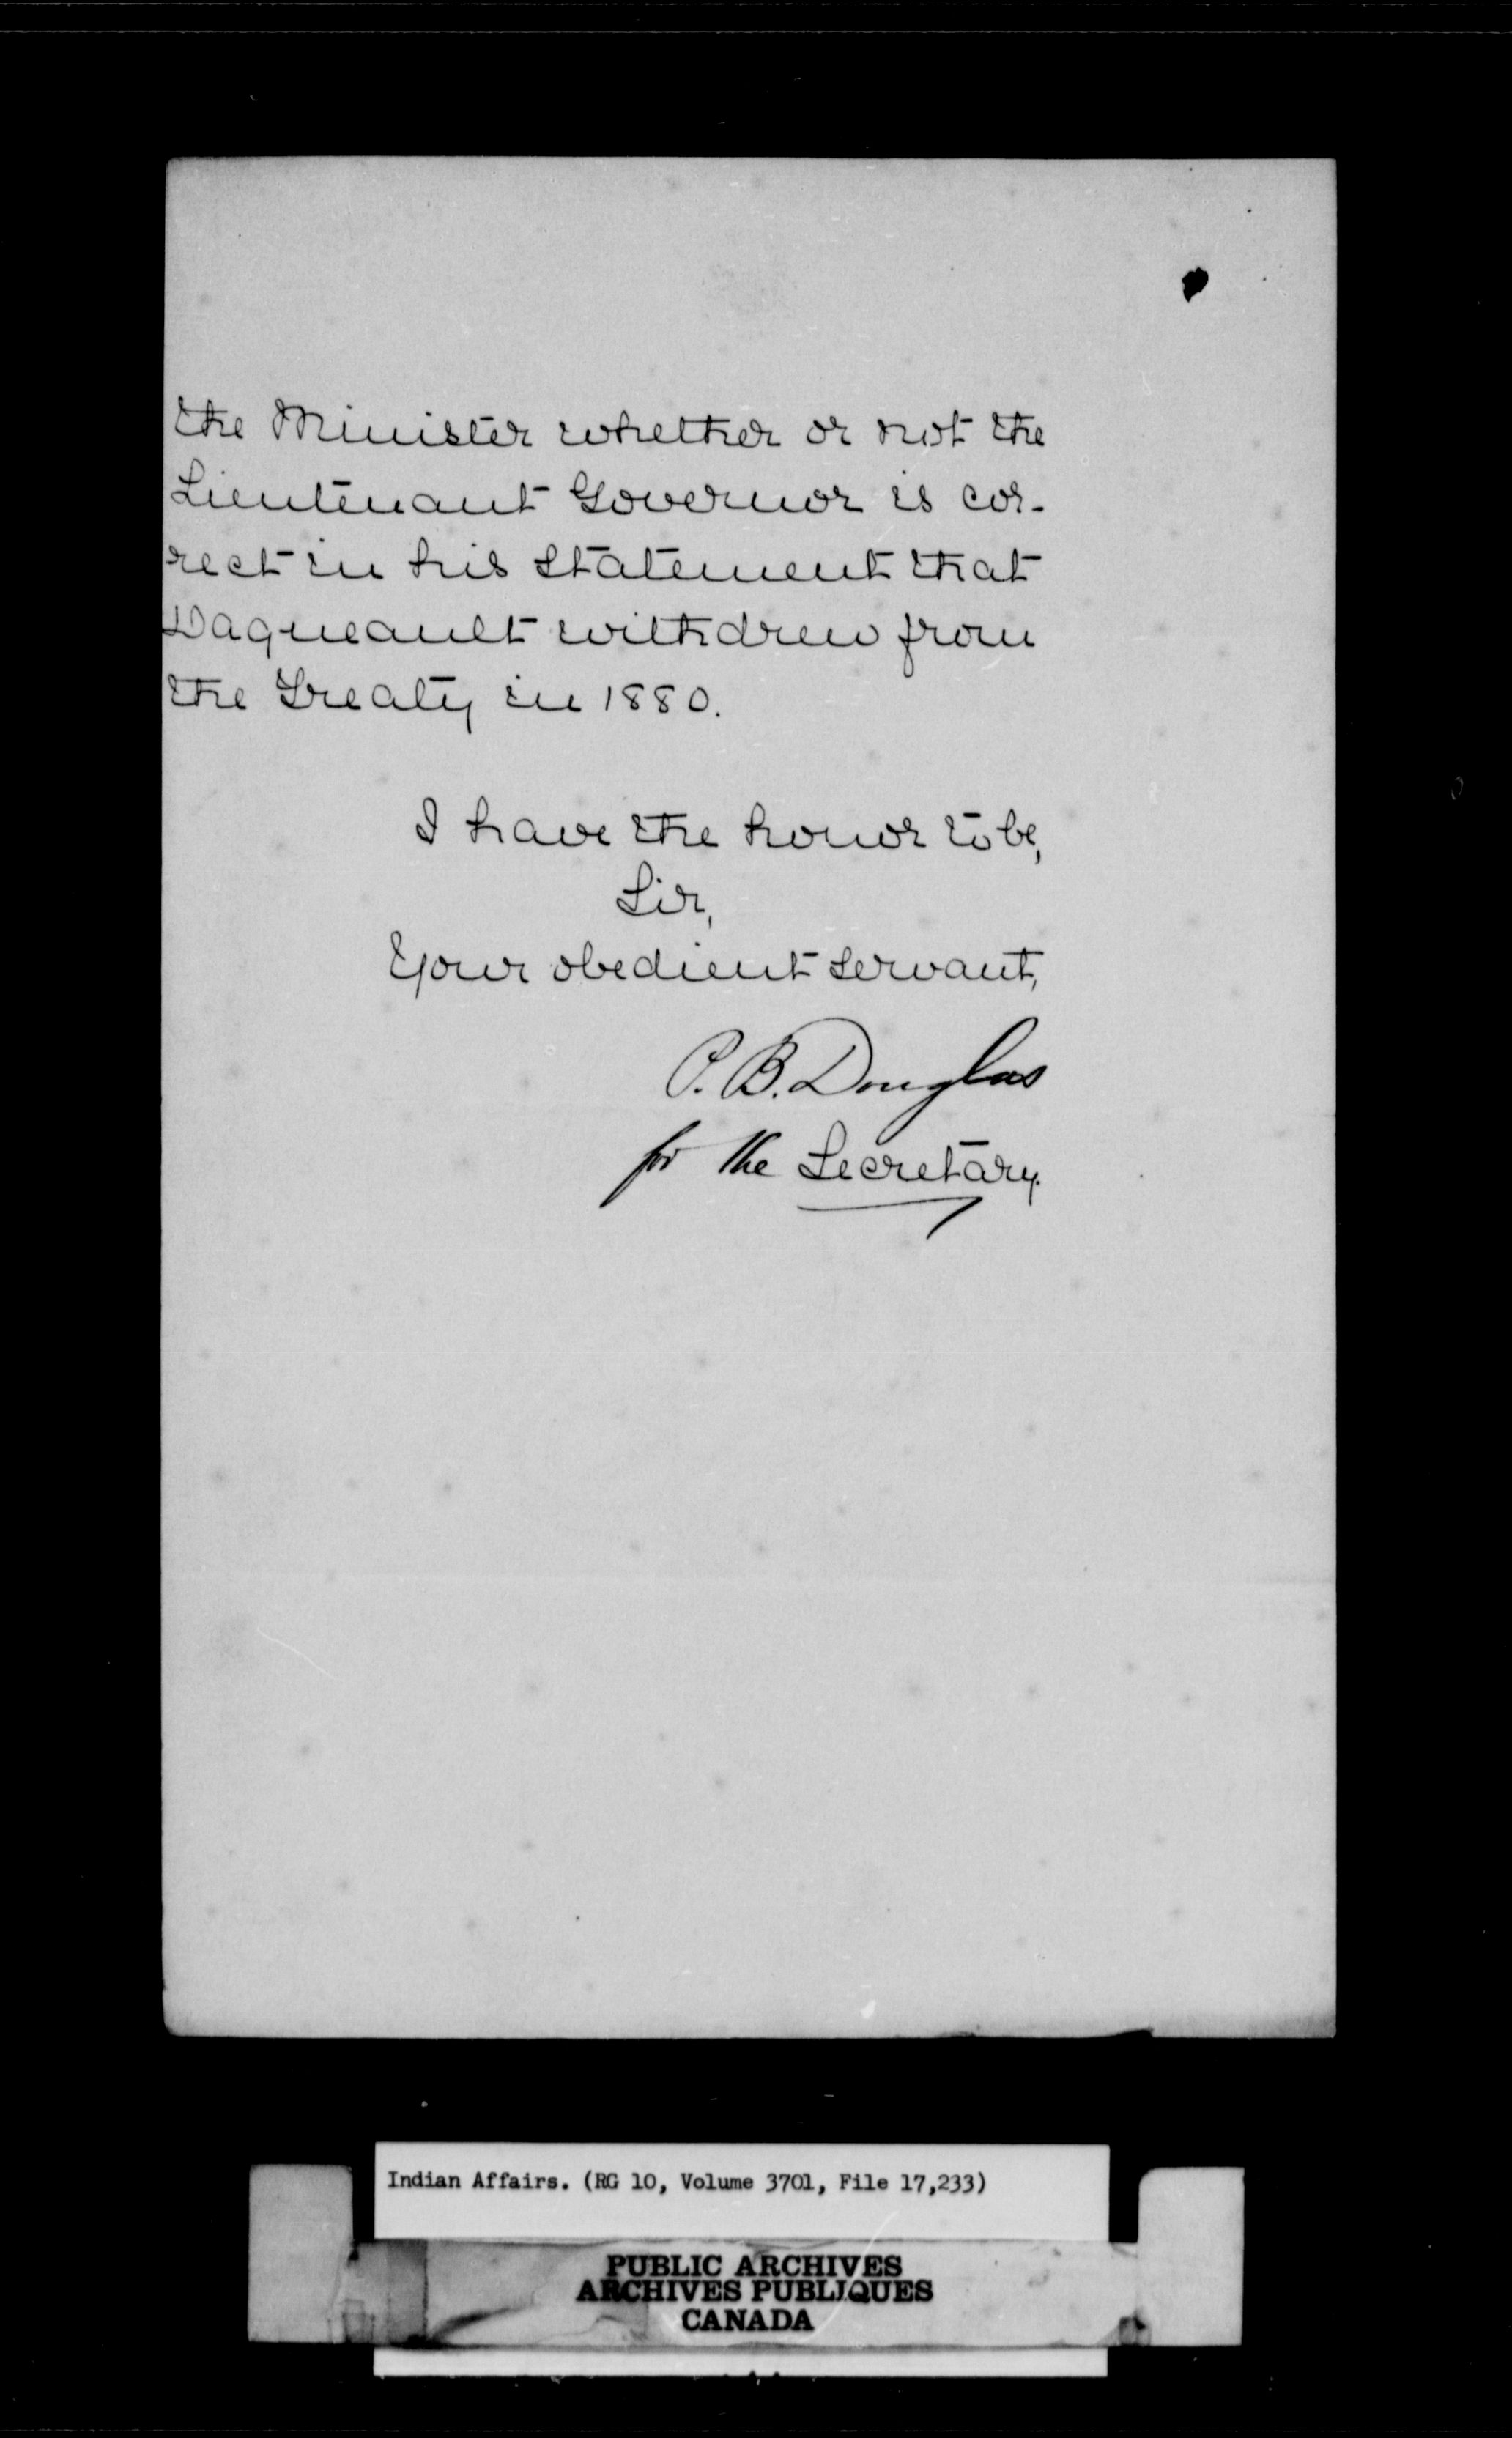 the Minister whether or not the
Lieutenant Governor is cor-
rect in his statement that
Dagneault withdrew from
the Treaty in 1880.
I have the honor to be,
Sir,
Your obedient servant,
P. B. Douglas
for the Secretary.
Indian Affairs. (RG 10, Volume 3701, File 17,233)
PUBLIC ARCHIVES
ARCHIVES PUBLIQUES
CANADA